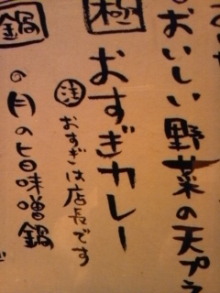 おいしい野菜の天プラ
極
おすぎカレー
注
おすぎは店長です
鍋
の月の旨味噌鍋